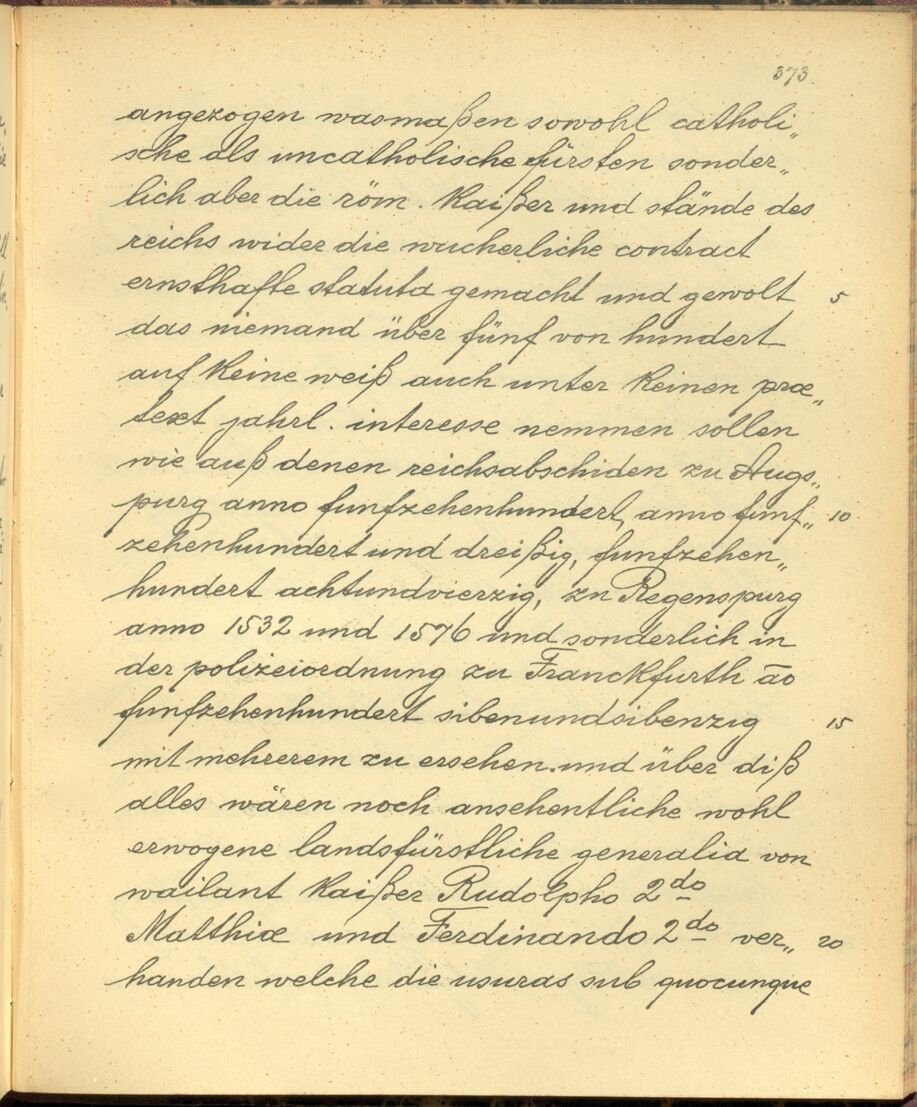 373.
angezogen wasmaßen sowohl catholi„
sche als uncatholische fürsten sonder„
lich aber die röm. Kaißer und stände des
reichs wider die wucherliche contract
ernsthafte statuta gemacht und gewolt 5
das niemand über fünf von hundert
auf keine weiß auch unter keinen præ„
text jahrl. interesse nemmen sollen
wie auß denen reichsabschiden zu Augs„
purg anno funfzehenhundert, anno funf„ 10
zehenhundert und dreißig, funfzehen„
hundert achtundvierzig, zu Regenspurg
anno 1532 und 1576 und sonderlich in
der polizeiordnung zu Franckfurth āo
funfzehenhundert sibenundsibenzig 15
mit mehrerem zu ersehen. und über diß
alles wären noch ansehentliche wohl
erwogene landsfürstliche generalia von
wailant Kaißer Rudolpho 2do
Matthiæ und Ferdinando 2do ver„ 20
handen welche die usuras sub quocunque